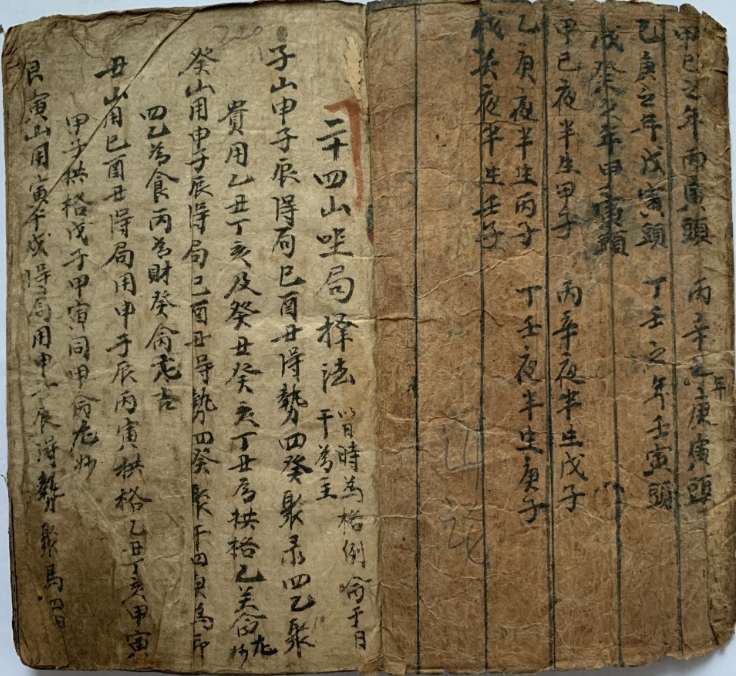 甲己之年丙寅頭　丙辛之年庚寅頭
乙庚之年戊寅頭　丁壬之年壬寅頭
戊癸之年甲寅頭
甲己夜半生甲子　丙辛夜半生戊子
乙庚夜半生丙子　丁壬夜半生庚子
戊癸夜半生壬子
二十四山坐局择法　皆時為格例喻于日干為主
子山申子辰得局巳酉丑得勢四癸聚录四乙聚
貴用乙丑丁亥及癸丑癸亥丁丑為拱格乙美
癸山用申子辰得局巳酉丑得勢四癸聚干四庚為印
四乙為食丙為財癸禽尤吉
丑山用巳酉丑得局用申子辰丙寅拱格乙丑丁亥甲寅
甲子拱格戊子甲寅同甲禽尤妙
艮寅山用寅午戌得局用申子辰得勢聚馬四